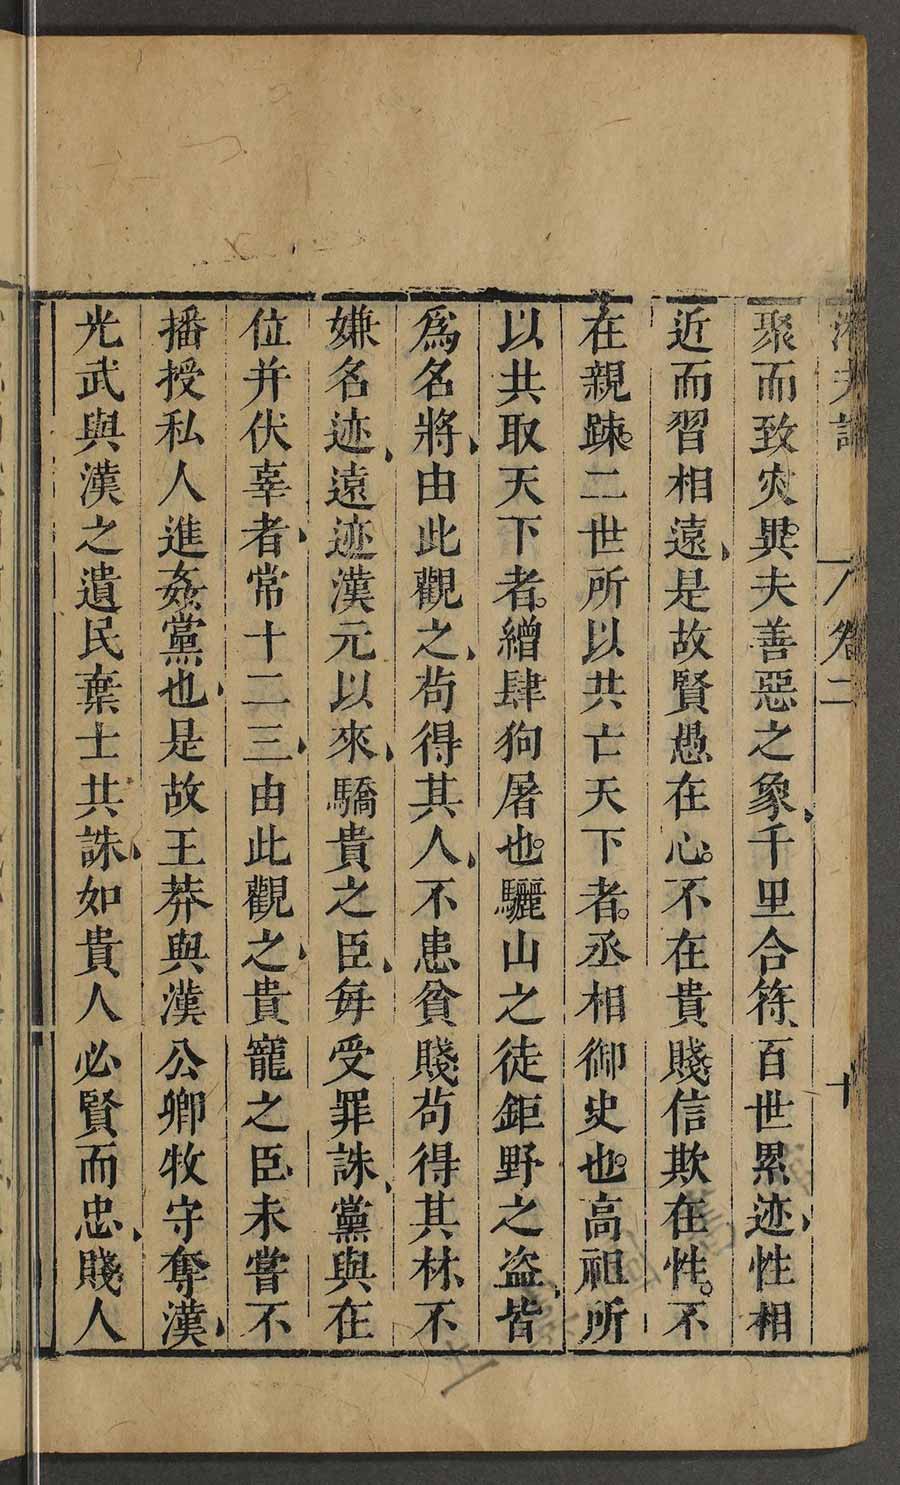 潛夫論 卷二 十
聚而致灾異夫善惡之象千里合符百世累迹性相
近而習相遠是故賢愚在心不在貴賤信欺在性不
在親踈二世所以共亡天下者丞相御史也高祖所
以共取天下者繒肆狗屠也驪山之徒鉅野之盜皆
爲名將由此觀之苟得其人不患貧賤苟得其材不
嫌名迹遠迹漢元以來驕貴之臣每受罪誅黨與在
位并伏辜者常十二三由此觀之貴寵之臣未嘗不
播授私人進姦黨也是故王莽與漢公卿牧守奪漢
光武與漢之遺民棄士共誅如貴人必賢而忠賤人